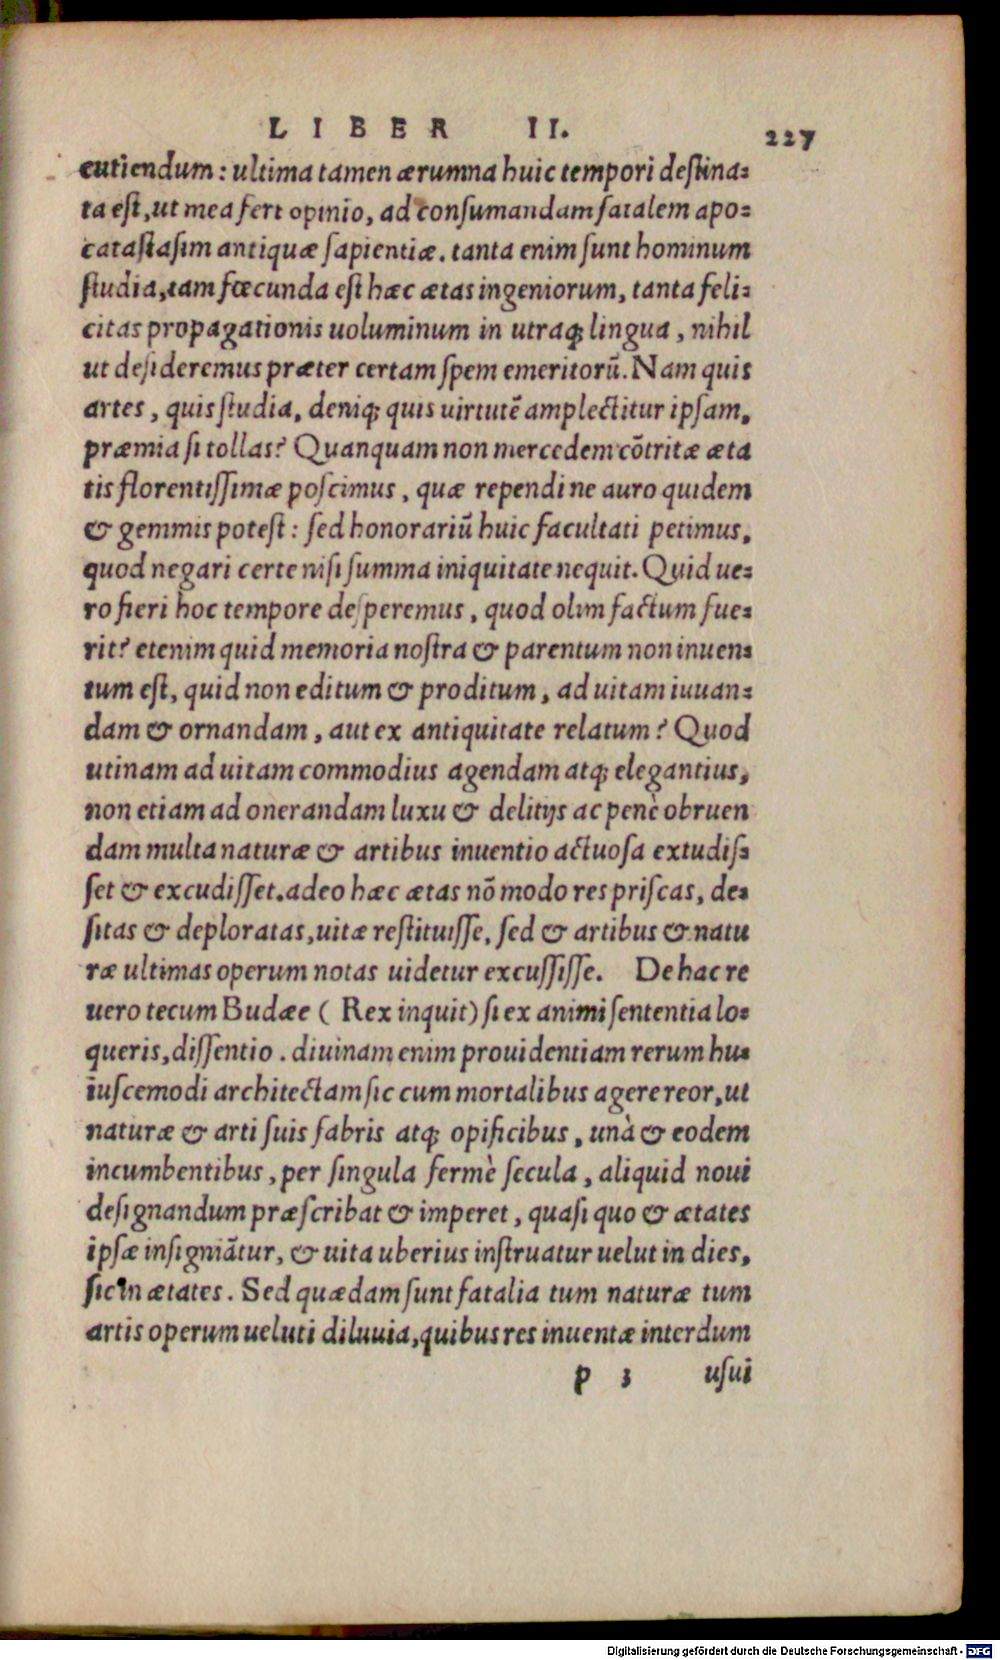 LIBER II. 227
cutiendum: ultima tamen ærumna huic tempori deſtina-
ta eſt, ut mea fert opinio, ad conſumandam fatalem apo-
cataſtaſim antiquæ ſapientiæ. tanta enim ſunt hominum
ſtudia, tam fœcunda eſt hæc ætas ingeniorum, tanta feli-
citas propagationis uoluminum in utraq; lingua, nihil
ut deſideremus præter certam ſpem emeritorũ. Nam quis
artes, quis ſtudia, deniq; quis uirtutẽ amplectitur ipſam,
præmia ſi tollas? Quanquam non mercedem cõtritæ æta
tis florentiſſimæ poſcimus, quæ rependi ne auro quidem
& gemmis poteſt: ſed honorariũ huic facultati petimus,
quod negari certe niſi ſumma iniquitate nequit. Quid ue-
ro fieri hoc tempore deſperemus, quod olim factum fue-
rit? etenim quid memoria noſtra & parentum non inuen-
tum eſt, quid non editum & proditum, ad uitam iuuan-
dam & ornandam, aut ex antiquitate relatum? Quod
utinam ad uitam commodius agendam atq; elegantius,
non etiam ad onerandam luxu & delitijs ac penè obruen
dam multa naturæ & artibus inuentio actuoſa extudiſ-
ſet & excudiſſet. adeo hæc ætas nõ modo res priſcas, de-
ſitas & deploratas, uitæ reſtituiſſe, ſed & artibus & natu
ræ ultimas operum notas uidetur excuſſiſſe. De hac re
uero tecum Budæe ( Rex inquit) ſi ex animi ſententia lo-
queris, diſſentio. diuinam enim prouidentiam rerum hu-
iuſcemodi architectam ſic cum mortalibus agere reor, ut
naturæ & arti ſuis fabris atq; opificibus, unà & eodem
incumbentibus, per ſingula fermè ſecula, aliquid noui
deſignandum præſcribat & imperet, quaſi quo & ætates
ipſæ inſigniãtur, & uita uberius inſtruatur uelut in dies,
ſic in ætates. Sed quædam ſunt fatalia tum naturæ tum
artis operum ueluti diluuia, quibus res inuentæ interdum
p 3 uſui
Digitalisierung gefördert durch die Deutsche Forschungsgemeinschaft - DFG